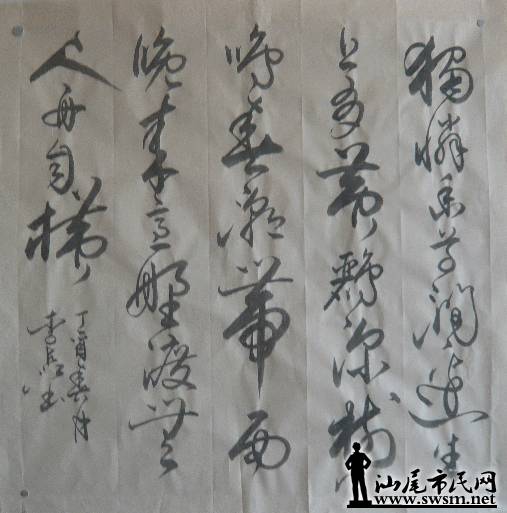 獨憐幽草澗邊生
上有黃鸝深樹
鳴春潮帶雨
晚來急野渡無
人舟自橫
丁酉春月
李
汕尾市民网
www.swsm.net